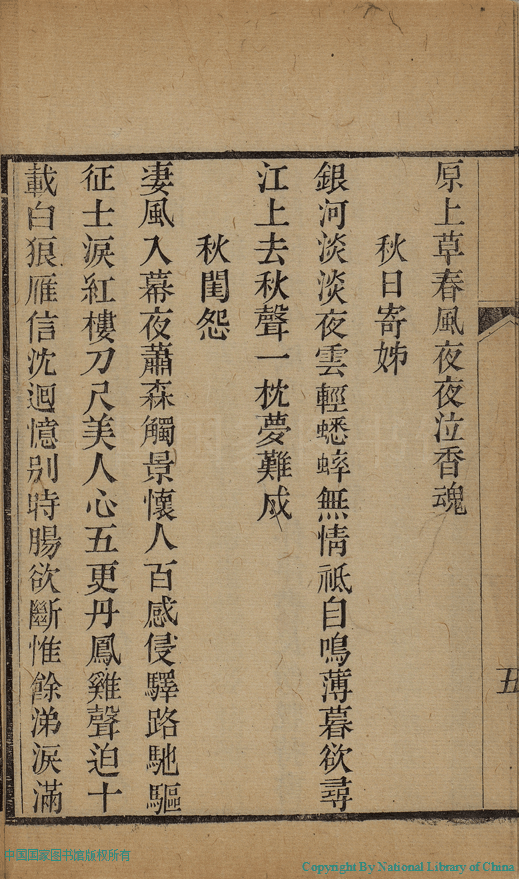 原上草春風夜夜泣香魂
秋日寄姊
銀河淡淡夜雲輕蟋蟀無情祗自鳴薄暮欲尋
江上去秋聲一枕夢難成
秋閨怨
淒風入幕夜蕭森觸景懷人百感侵驛路馳驅
征士淚紅樓刀尺美人心五更丹鳳雞聲迫十
載白狼雁信沈迴憶别時腸欲斷惟餘涕淚滿
五
中国国家图书馆版权所有
Copyright By National Library of China